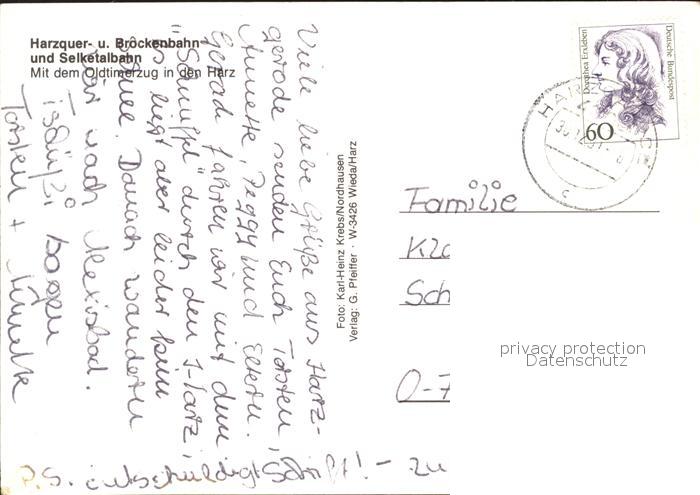 Harzquer- u. Brockenbahn
und Selketalbahn
Mit dem Oldtimerzug in den Harz
Viele liebe Grüße aus Harz-
gerode senden Euch Torsten,
Annette, Peggy und Eltern.
Gerad fahren wir mit dem
"Schnuffl" durch den Harz,
es liegt aber leider kein
Schnee. Danach wandern
wir nach Alexisbad.
Tschüßi sagen
Torsten + Annette
P.S. entschuldigt Schrift! - zu
Foto: Karl-Heinz Krebs/Nordhausen
Verlag: G. Pfeiffer · W-3426 Wieda/Harz
Dorothea Erxleben
Deutsche Bundespost
60
Familie
Kla
Sch
O-7
privacy protection
Datenschutz